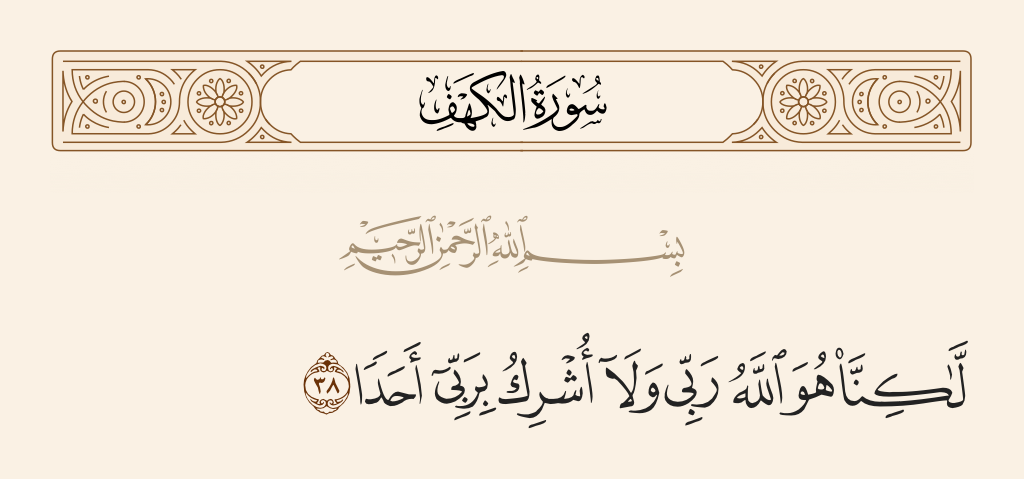 سُورَةُ الكَهْفِ
بِسْمِ ٱللَّهِ ٱلرَّحْمَٰنِ ٱلرَّحِيمِ
لَّٰكِنَّا۠ هُوَ ٱللَّهُ رَبِّى وَلَآ أُشْرِكُ بِرَبِّىٓ أَحَدًا ٣٨